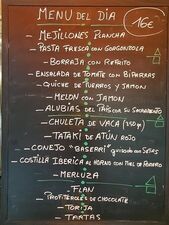 MENU DEL DIA
16€
- MEJILLONES PLANCHA
- PASTA FRESCA CON GORGONZOLA
- BORRAJA CON REFRITO
- ENSALADA DE TOMATE CON PIPARRAS
- QUICHE DE PUERROS Y JAMON
- MELON CON JAMON
- ALUBIAS DEL PAIS CON SU SACRAMENTO
- CHULETA DE VACA (350g)
- TATAKI DE ATÚN ROJO
- CONEJO "BASERRI" GUISADO CON SETAS
- COSTILLA IBERICA AL HORNO CON MIEL DE ROMERO
- MERLUZA
- FLAN
- PROFITEROLES DE CHOCOLATE
- TORIJA
- TARTAS